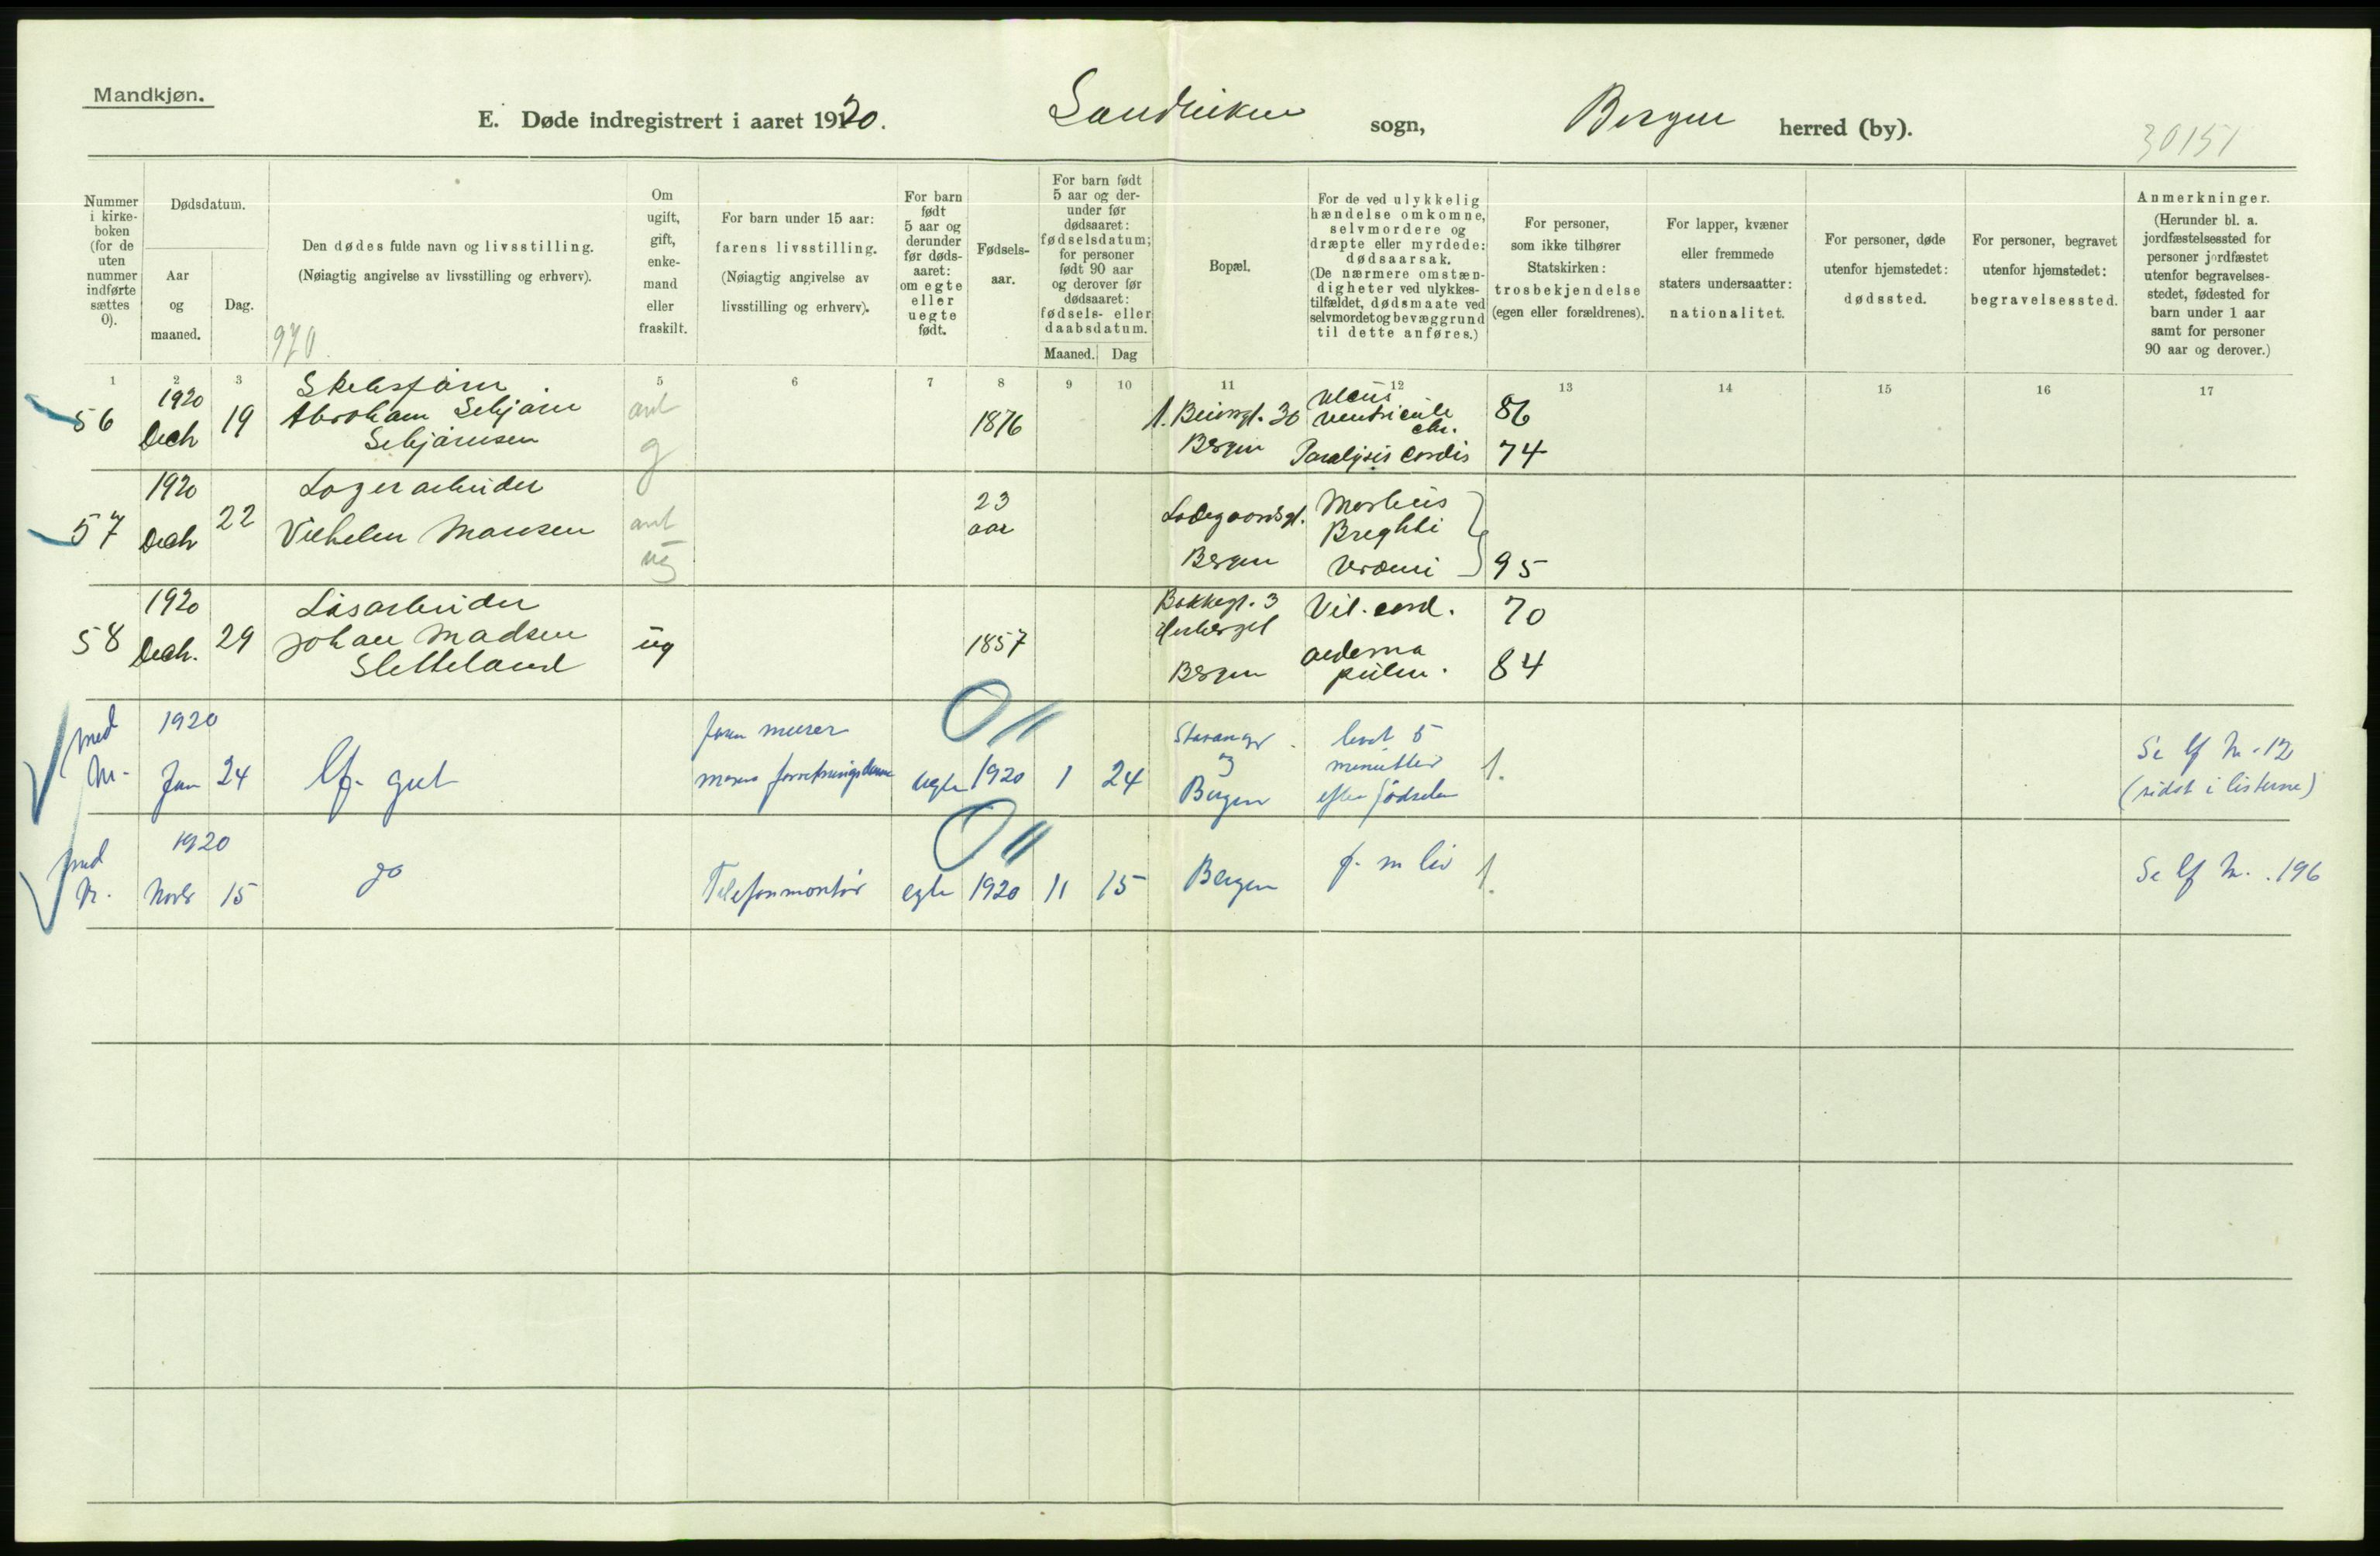 Mandkjøn.
E. Døde indregistrert i aaret 1920. Sandviken sogn, Bergen herred (by).
30151
Nummer i kirke-boken (for de uten nummer indførte sættes 0).
Dødsdatum.
Aar og maaned.
Dag.
Den dødes fulde navn og livsstilling.
(Nøiagtig angivelse av livsstilling og erhverv).
970.
Om ugift, gift, enke-mand eller fraskilt.
For barn under 15 aar: farens livsstilling.
(Nøiagtig angivelse av livsstilling og erhverv).
For barn født 5 aar og derunder før døds-aaret: om egte eller uegte født.
Fødsels-aar.
For barn født 5 aar og der-under før dødsaaret: fødselsdatum; for personer født 90 aar og derover før dødsaaret: fødsels- eller daabsdatum.
Maaned. Dag
Bopæl.
For de ved ulykkelig hændelse omkomne, selvmordere og dræpte eller myrdede: dødsaarsak.
(De nærmere omstæn-digheter ved ulykkes-tilfældet, dødsmaate ved selvmordet og bevæggrund til dette anføres.)
For personer, som ikke tilhører Statskirken: trosbekjendelse (egen eller forældrenes).
For lapper, kvæner eller fremmede staters undersaatter: nationalitet.
For personer, døde utenfor hjemstedet: dødssted.
For personer, begravet utenfor hjemstedet: begravelsessted.
Anmerkninger.
(Herunder bl. a. jordfæstelsessted for personer jordfæstet utenfor begravelses-stedet, fødested for barn under 1 aar samt for personer 90 aar og derover.)
1 2 3 5 6 7 8 9 10 11 12 13 14 15 16 17
56 1920 Dech 19
Abraham Schjørn
Schjørnsen
ant
g
1876
30
Bergen
Ulcus
ventriculi
chr.
Paralysis cordis
86
74
57 1920 Dech 22
Lagerarbeider
Vilhelm Monsen
ant
ug
23
aar
Ladegaardsgt.
Bergen
Morbus
Brightii
Uræmi
95
58 1920 Dech. 29
Løsarbeider
Johan Madsen
Sletteland
ug
1857
Bakkegt. 3
Herberget
Bergen
Vit. cord.
oedema
pulm.
70
84
med
Nr.
1920
Jan 24
lf. gut
faren murer
moren forretningsdame
uegte 1920 1 24
Stavanger
Bergen
levet 5
minutter
efter fødselen
1.
Se lf Nr. 12
(sidst i listerne)
med
Nr.
1920
Novbr 15
do
Telefonmontør
egte 1920 11 15
Bergen
f. m liv
1.
Se lf Nr. 196